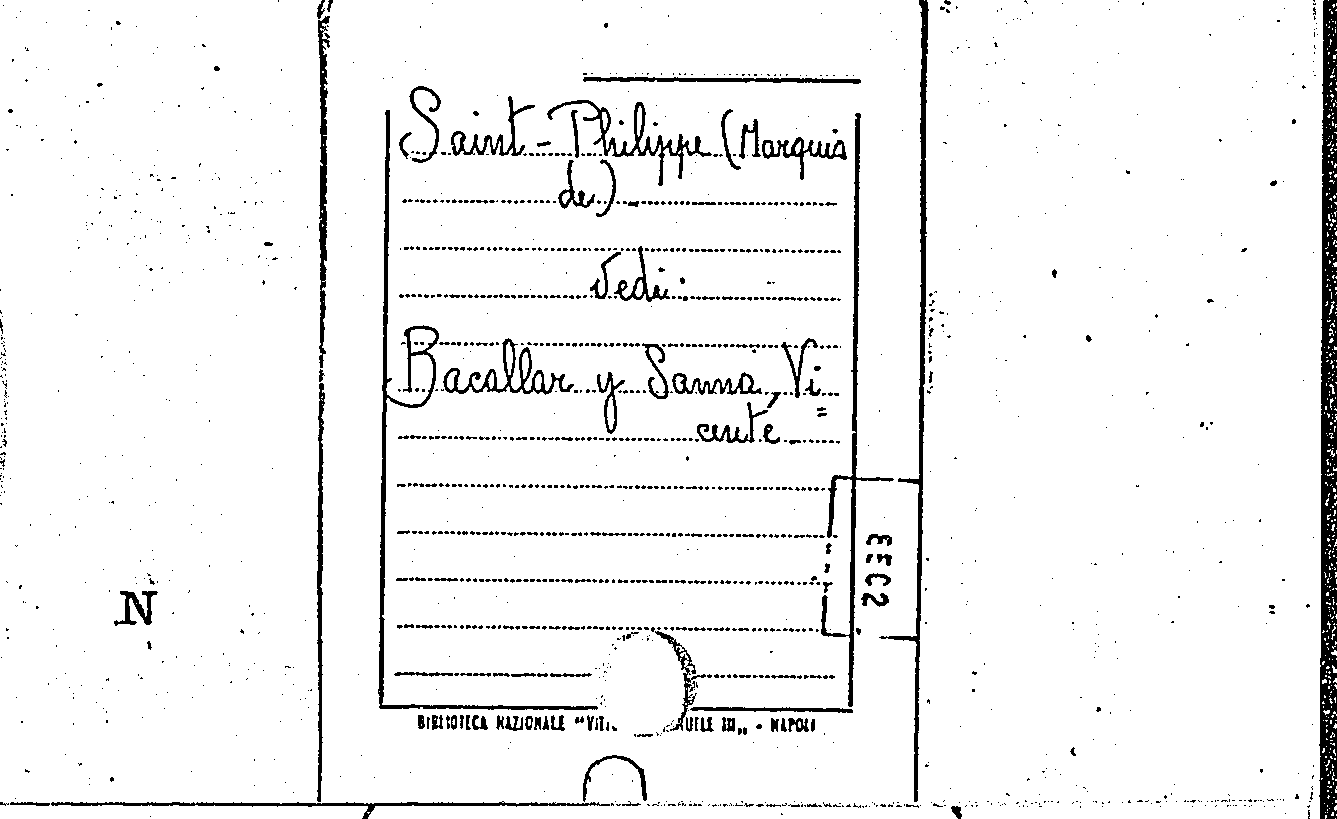 Saint-Philippe (Marquis
de).
Vedi:
Bacallar y Sanna, Vi=
cente.
EEC2
N
BIBLIOTECA NAZIONALE "VITT UELE III„ - NAPOLI